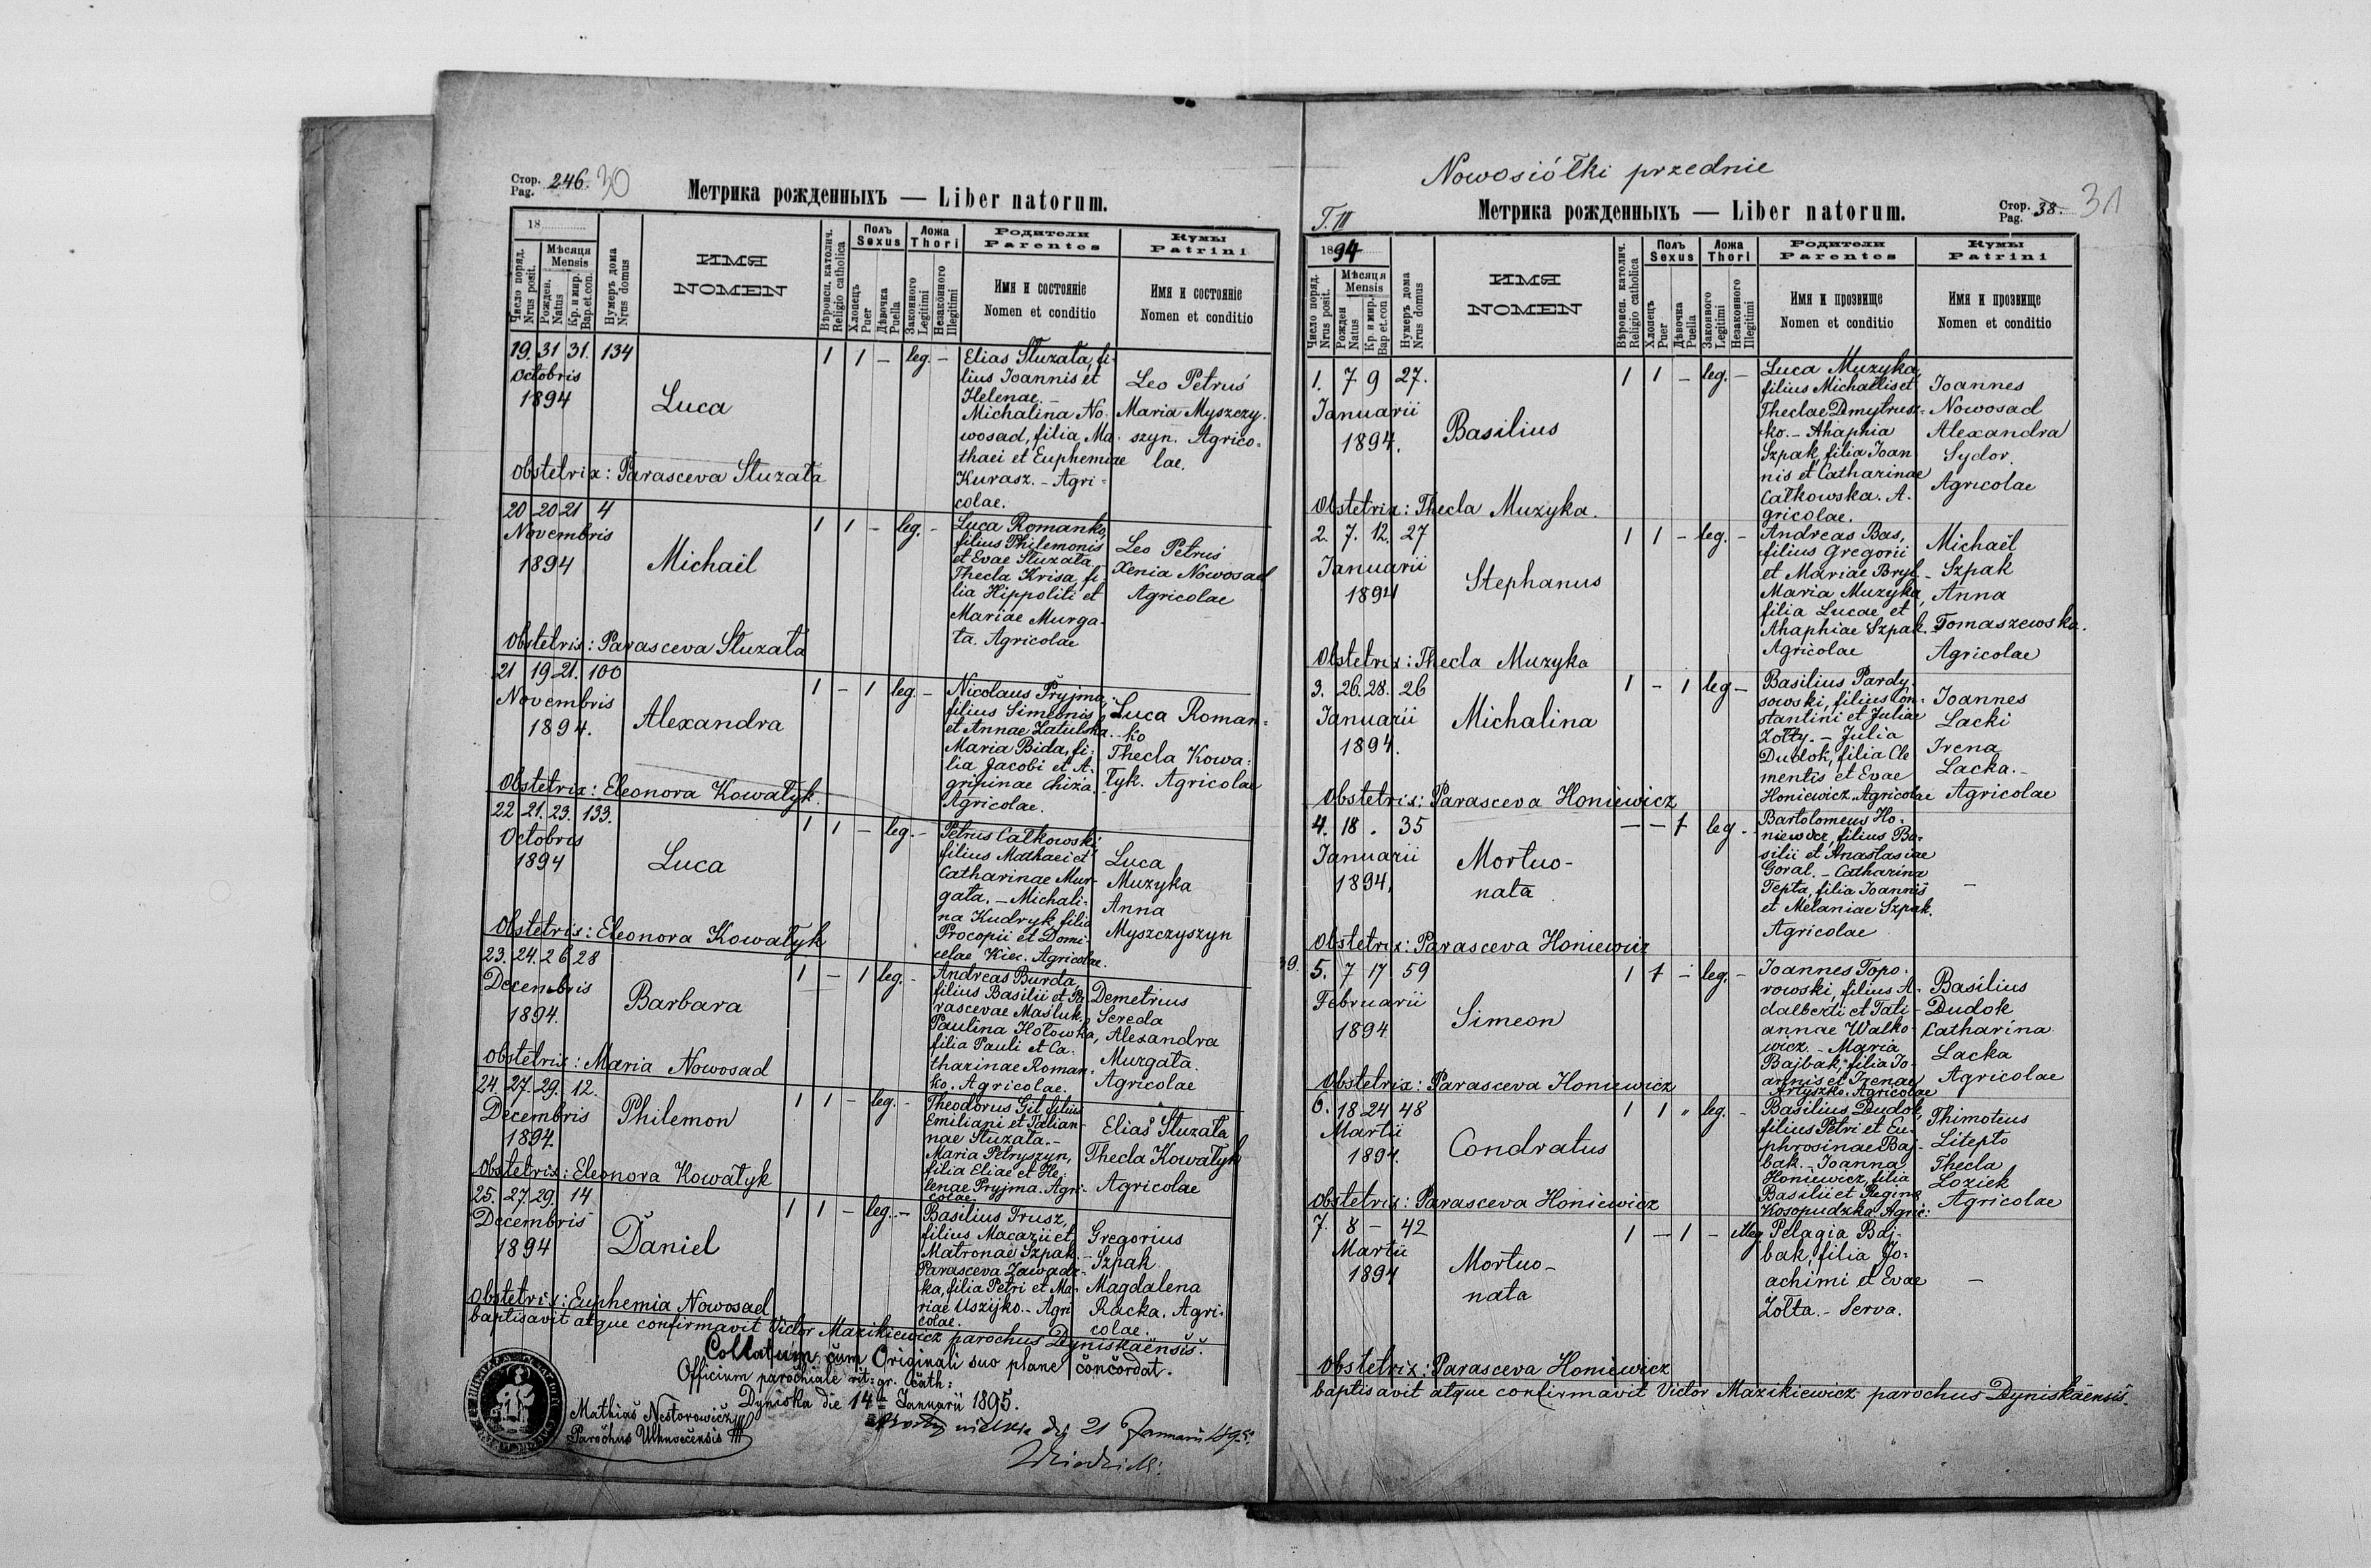 Стор. 246. 30
Pag.
Метрика рожденныхъ — Liber natorum.
18
Число поряд. Nrus posit.
Мѣсяця Mensis
Рожден. Natus
Кр. и мир. Bap. et. con.
Нумеръ дома Nrus domus
ИМЯ
NOMEN
Вѣроисп. католич. Religio catholica
Полъ Sexus
Хлопець Puer
Дѣвочка Puella
Ложа Thori
Законного Legitimi
Незаконного Illegitimi
Родители Parentes
Имя и состояніе
Nomen et conditio
Кумы Patrini
Имя и состояніе
Nomen et conditio
19. 31 31. 134
Octobris
1894
Luca
1 1 – leg. –
Elias Stuzała, fi-
lius Joannis et
Helenae. –
Michalina No-
wosad, filia Ma-
thaei et Euphemiae
Kurasz. – Agri-
colae.
Leo Petruś
Maria Myszczy-
szyn. Agrico-
lae.
Obstetrix: Parasceva Stuzała
20 20 21 4
Novembris
1894
Michaël
1 1 – leg. –
Luca Romanko,
filius Philemonis
et Evae Stuzała.
Thecla Krisa, fi-
lia Hippoliti et
Mariae Murga-
ta. Agricolae
Leo Petruś
Xenia Nowosad
Agricolae
Obstetrix: Parasceva Stuzała
21 19 21. 100
Novembris
1894.
Alexandra
1 – 1 leg. –
Nicolaus Pryjma,
filius Simeonis
et Annae Zatulska.
Maria Bida, fi-
lia Jacobi et A-
gripinae Chiza.
Agricolae.
Luca Roman-
ko
Thecla Kowa-
łyk. Agricolae
Obstetrix: Eleonora Kowałyk.
22 21. 23. 133.
Octobris
1894
Luca
1 1 – leg. –
Petrus Całkowski
filius Mathaei et
Catharinae Mur-
gała. – Michali-
na Kudryk filia
Procopii et Domi-
celae Kiec. Agricolae.
Luca
Muzyka
Anna
Myszczyszyn
Obstetrix: Eleonora Kowałyk
23. 24. 26 28
Decembris
1894.
Barbara
1 – 1 leg. –
Andreas Burda,
filius Basilii et Pa-
rascevae Masluk.
Paulina Hołowka,
filia Pauli et Ca-
tharinae Roman-
ko. Agricolae.
Demetrius
Sereda
Alexandra
Murgała.
Agricolae
Obstetrix: Maria Nowosad
24 27. 29. 12.
Decembris
1894
Philemon
1 1 – leg. –
Theodorus Gil filius
Emiliani et Tatian-
nae Stuzała. –
Maria Petryszyn,
filia Eliae et He-
lenae Pryjma. Agri-
colae.
Elias Stuzała
Thecla Kowałyk
Agricolae
Obstetrix: Eleonora Kowałyk
25. 27. 29. 14
Decembris
1894
Daniel
1 1 – leg. –
Basilius Trusz,
filius Macarii et
Matronae Szpak. –
Parasceva Zawadz-
ka, filia Petri et Ma-
riae Uszijko. – Agri
colae.
Gregorius
Szpak
Magdalena
Racka. Agri-
colae.
Obstetrix: Euphemia Nowosad
baptisavit atque confirmavit Victor Mazikiewicz parochus Dyniskaënsis.
Collatum cum Originali suo plane concordat.
Officium parochiale rit: gr. Cath:
Dyniska die 14 Januarii 1895.
Mathias Nestorowicz
Parochus Uhnovecensis
21 Januarii 1895.
Nowosiółki przednie
T. II
Метрика рожденныхъ — Liber natorum.
Стор. 38. 31
Pag.
1894
Число поряд. Nrus posit.
Мѣсяця Mensis
Рожден Natus
Кр. и мир. Bap et. con
Нумеръ дома Nrus domus
ИМЯ
NOMEN
Вѣроисп. католич. Religio catholica
Полъ Sexus
Хлопецъ Puer
Дѣвочка Puella
Ложа Thori
Законного Legitimi
Незаконного Illegitimi
Родители Parentes
Имя и прозвище
Nomen et conditio
Кумы Patrini
Имя и прозвище
Nomen et conditio
1. 7. 9 27.
Januarii
1894.
Basilius
1 1 – leg. –
Luca Muzyka,
filius Michaëlis et
Theclae Dmytrusz-
ko. – Ahaphia
Szpak, filia Joan
nis et Catharinae
Całkowska. A-
gricolae.
Joannes
Nowosad
Alexandra
Sydor.
Agricolae
Obstetrix: Thecla Muzyka.
2. 7. 12. 27
Januarii
1894
Stephanus
1 1 – leg. –
Andreas Bas,
filius Gregorii
et Mariae Bryl. –
Maria Muzyka,
filia Lucae et
Ahaphiae Szpak.
Agricolae
Michaël
Szpak
Anna
Tomaszewska.
Agricolae
Obstetrix: Thecla Muzyka
3. 26. 28. 26
Januarii
1894.
Michalina
1 – 1 leg –
Basilius Pardy-
sowski, filius Con-
stantini et Juliae
Zołty. – Julia
Dudok, filia Cle
mentis et Evae
Honiewicz. Agricolae
Joannes
Lacki
Irena
Lacka. –
Agricolae
Obstetrix: Parasceva Honiewicz
4. 18 . 35
Januarii
1894.
Mortuo-
nata
– – 1 leg. –
Bartolomeus Ho-
niewicz, filius Ba-
silii et Anastasiae
Goral. – Catharina
Tepta, filia Joannis
et Melaniae Szpak.
Agricolae
–
Obstetrix: Parasceva Honiewicz
39.
5. 7 17 59
Februarii
1894
Simeon
1 1 – leg. –
Joannes Topo-
rowski, filius A-
dalberti et Tati-
annae Walko-
wicz. – Maria
Bajbak, filia Jo-
annis et Irenae
Artyszko. Agricolae
Basilius
Dudok
Catharina
Lacka
Agricolae
Obstetrix: Parasceva Honiewicz
6. 18 24 48
Martii
1894.
Condratus
1 1 " leg. –
Basilius Dudok,
filius Petri et Eu-
phrosinae Baj-
bak. – Joanna
Honiewicz, filia
Basilii et Reginae
Kosopudzka. Agric:
Thimoteus
Litepto
Thecla
Loziek
Agricolae
Obstetrix: Parasceva Honiewicz
7. 8 – 42
Martii
1894
Mortuo-
nata
1 – 1 – illeg.
Pelagia Baj-
bak, filia Jo-
achimi et Evae
Żołta. – Serva.
–
Obstetrix: Parasceva Honiewicz
baptisavit atque confirmavit Victor Mazikiewicz parochus Dyniskaënsis.